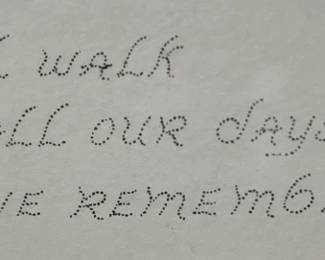 WALK
ALL OUR DAYS
WE REMEMB